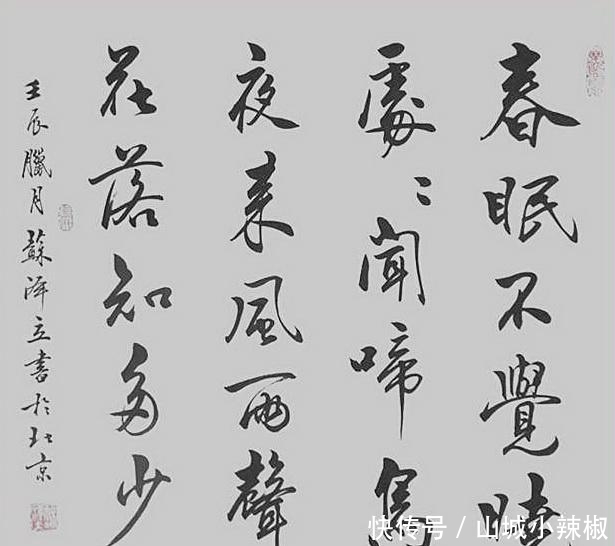 春眠不覺曉
處〻聞啼鳥
夜來風雨聲
花落知多少
壬辰臘月蘇澤立書於北京
快传号 / 山城小辣椒